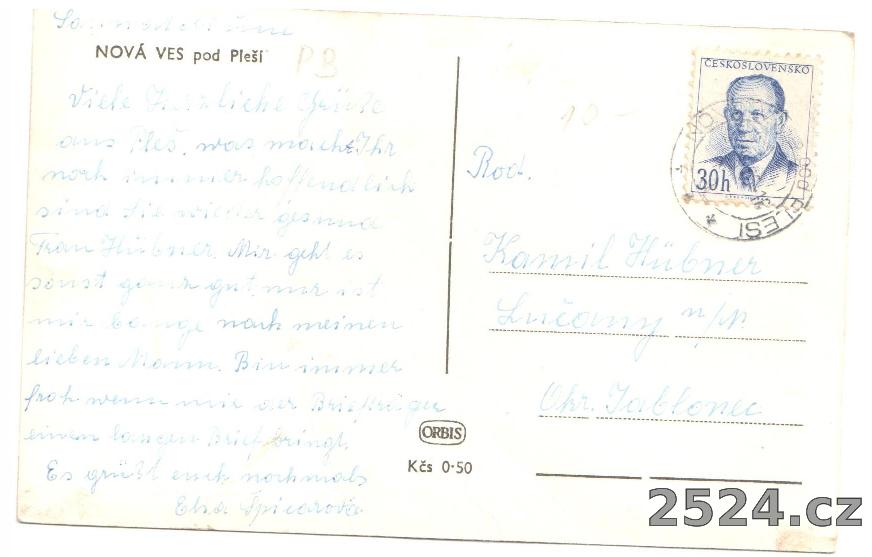 NOVÁ VES pod Pleší
PB
Viele Herzliche Grüße
aus Pleš, was macht Ihr
noch immer hoffendlich
sind Sie wieder gesund
Frau Hübner. Mir geht es
sonst ganz gut, nur ist
mir bange nach meinen
lieben Mann. Bin immer
froh wenn mir der Briefträger
einen langen Brief bringt.
Es grüßt euch nochmals
Elsa
ČESKOSLOVENSKO
30h
POD PLEŠÍ
10 –
Rod.
Kamil Hübner
Lučany n/N.
Okr. Jablonec
ORBIS
Kčs 0·50
2524.cz